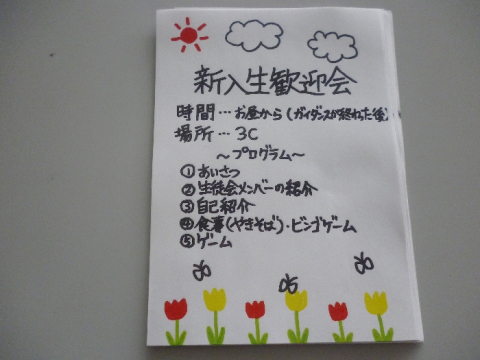 新入生歓迎会
時間…お昼から(ガイダンスが終わった後)
場所…3C
〜プログラム〜
①あいさつ
②生徒会メンバーの紹介
③自己紹介
④食事(やきそば)・ビンゴゲーム
⑤ゲーム